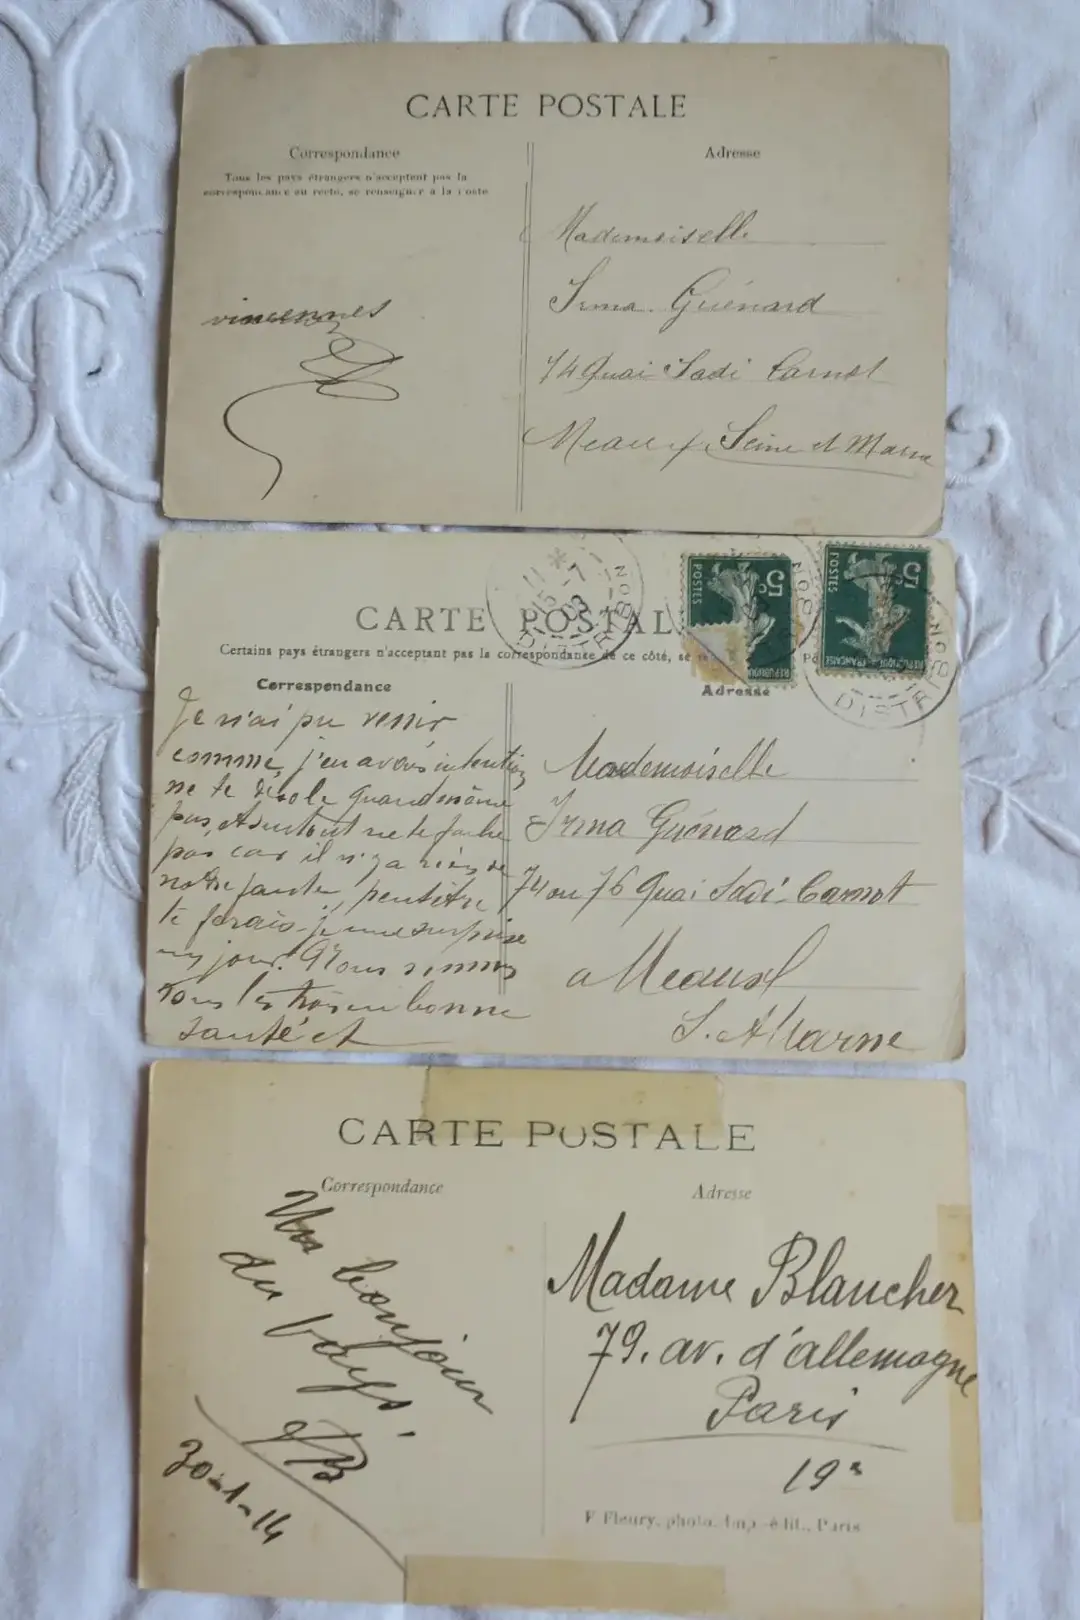 CARTE POSTALE
Correspondance
Adresse
Tous les pays étrangers n'acceptent pas la
correspondance au recto, se renseigner à la Poste
Mademoiselle
Irma Guénard
74 Quai Sadi Carnot
Meaux, Seine et Marne
vincennes
CARTE POSTAL
Certains pays étrangers n'acceptant pas la correspondance de ce côté, se
Correspondance
Adresse
11 *
15-7
08
DISTRIBUON
POSTES
5c
POSTES
5c
REPUBLIQUE FRANÇAISE
DISTRIBUON
Je n'ai pu venir
comme j'en avais intention
ne te désole quand même
pas, et surtout ne te fache
pas car il n'y a rien de
notre faute, peut être
te ferais-je une surprise
un jour. Nous sommes
tous les trois en bonne
santé et
Mademoiselle
Irma Guénard
74 ou 76 Quai Sadi-Carnot
a Meaux
S. et Marne
CARTE POSTALE
Correspondance
Adresse
Un bonjour
du pays.
JB
30-1-14
Madame Blancher
79. av. d'allemagne
Paris
19e
F. Fleury, photo. Imp.-édit., Paris